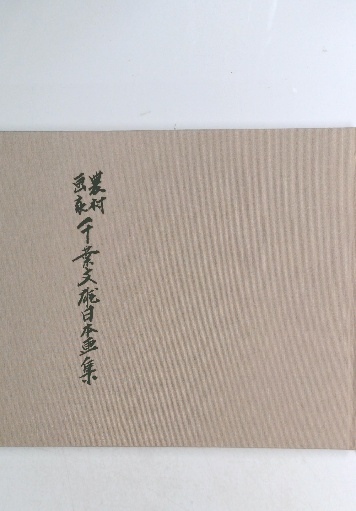 農村
画家
千葉文雄日本画集